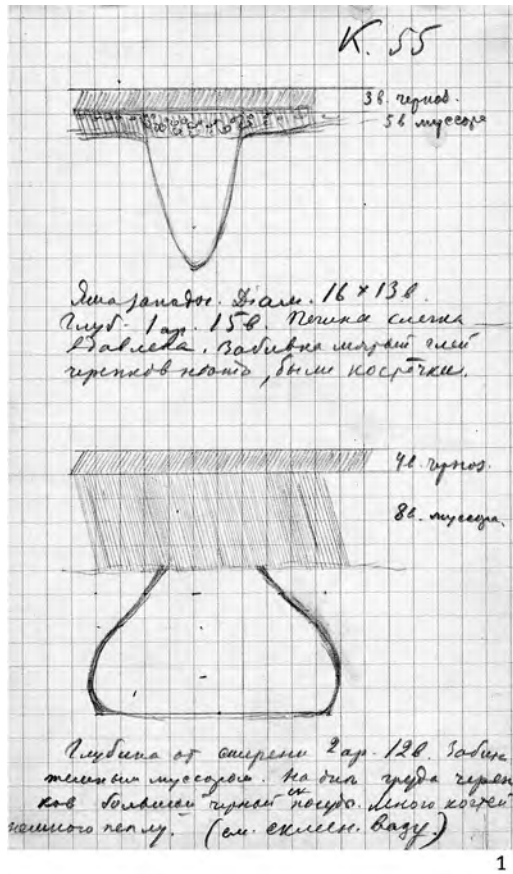 К. 55
3в. черноз.
5в муссора
Яма западн. Діам. 16 × 13 в.
Глуб. 1 ар. 15 в. Печина слегка
вдавлена. Забивка мягкий глей
черепков никто, были косточки.
4в. черноз.
8в. муссора.
Глубина от 2 ар. 12 в. Забита
темным муссором. На дне груда череп
ков большой черной посуды. Много костей
немного пеплу. (см. склеен. вазу.)
1